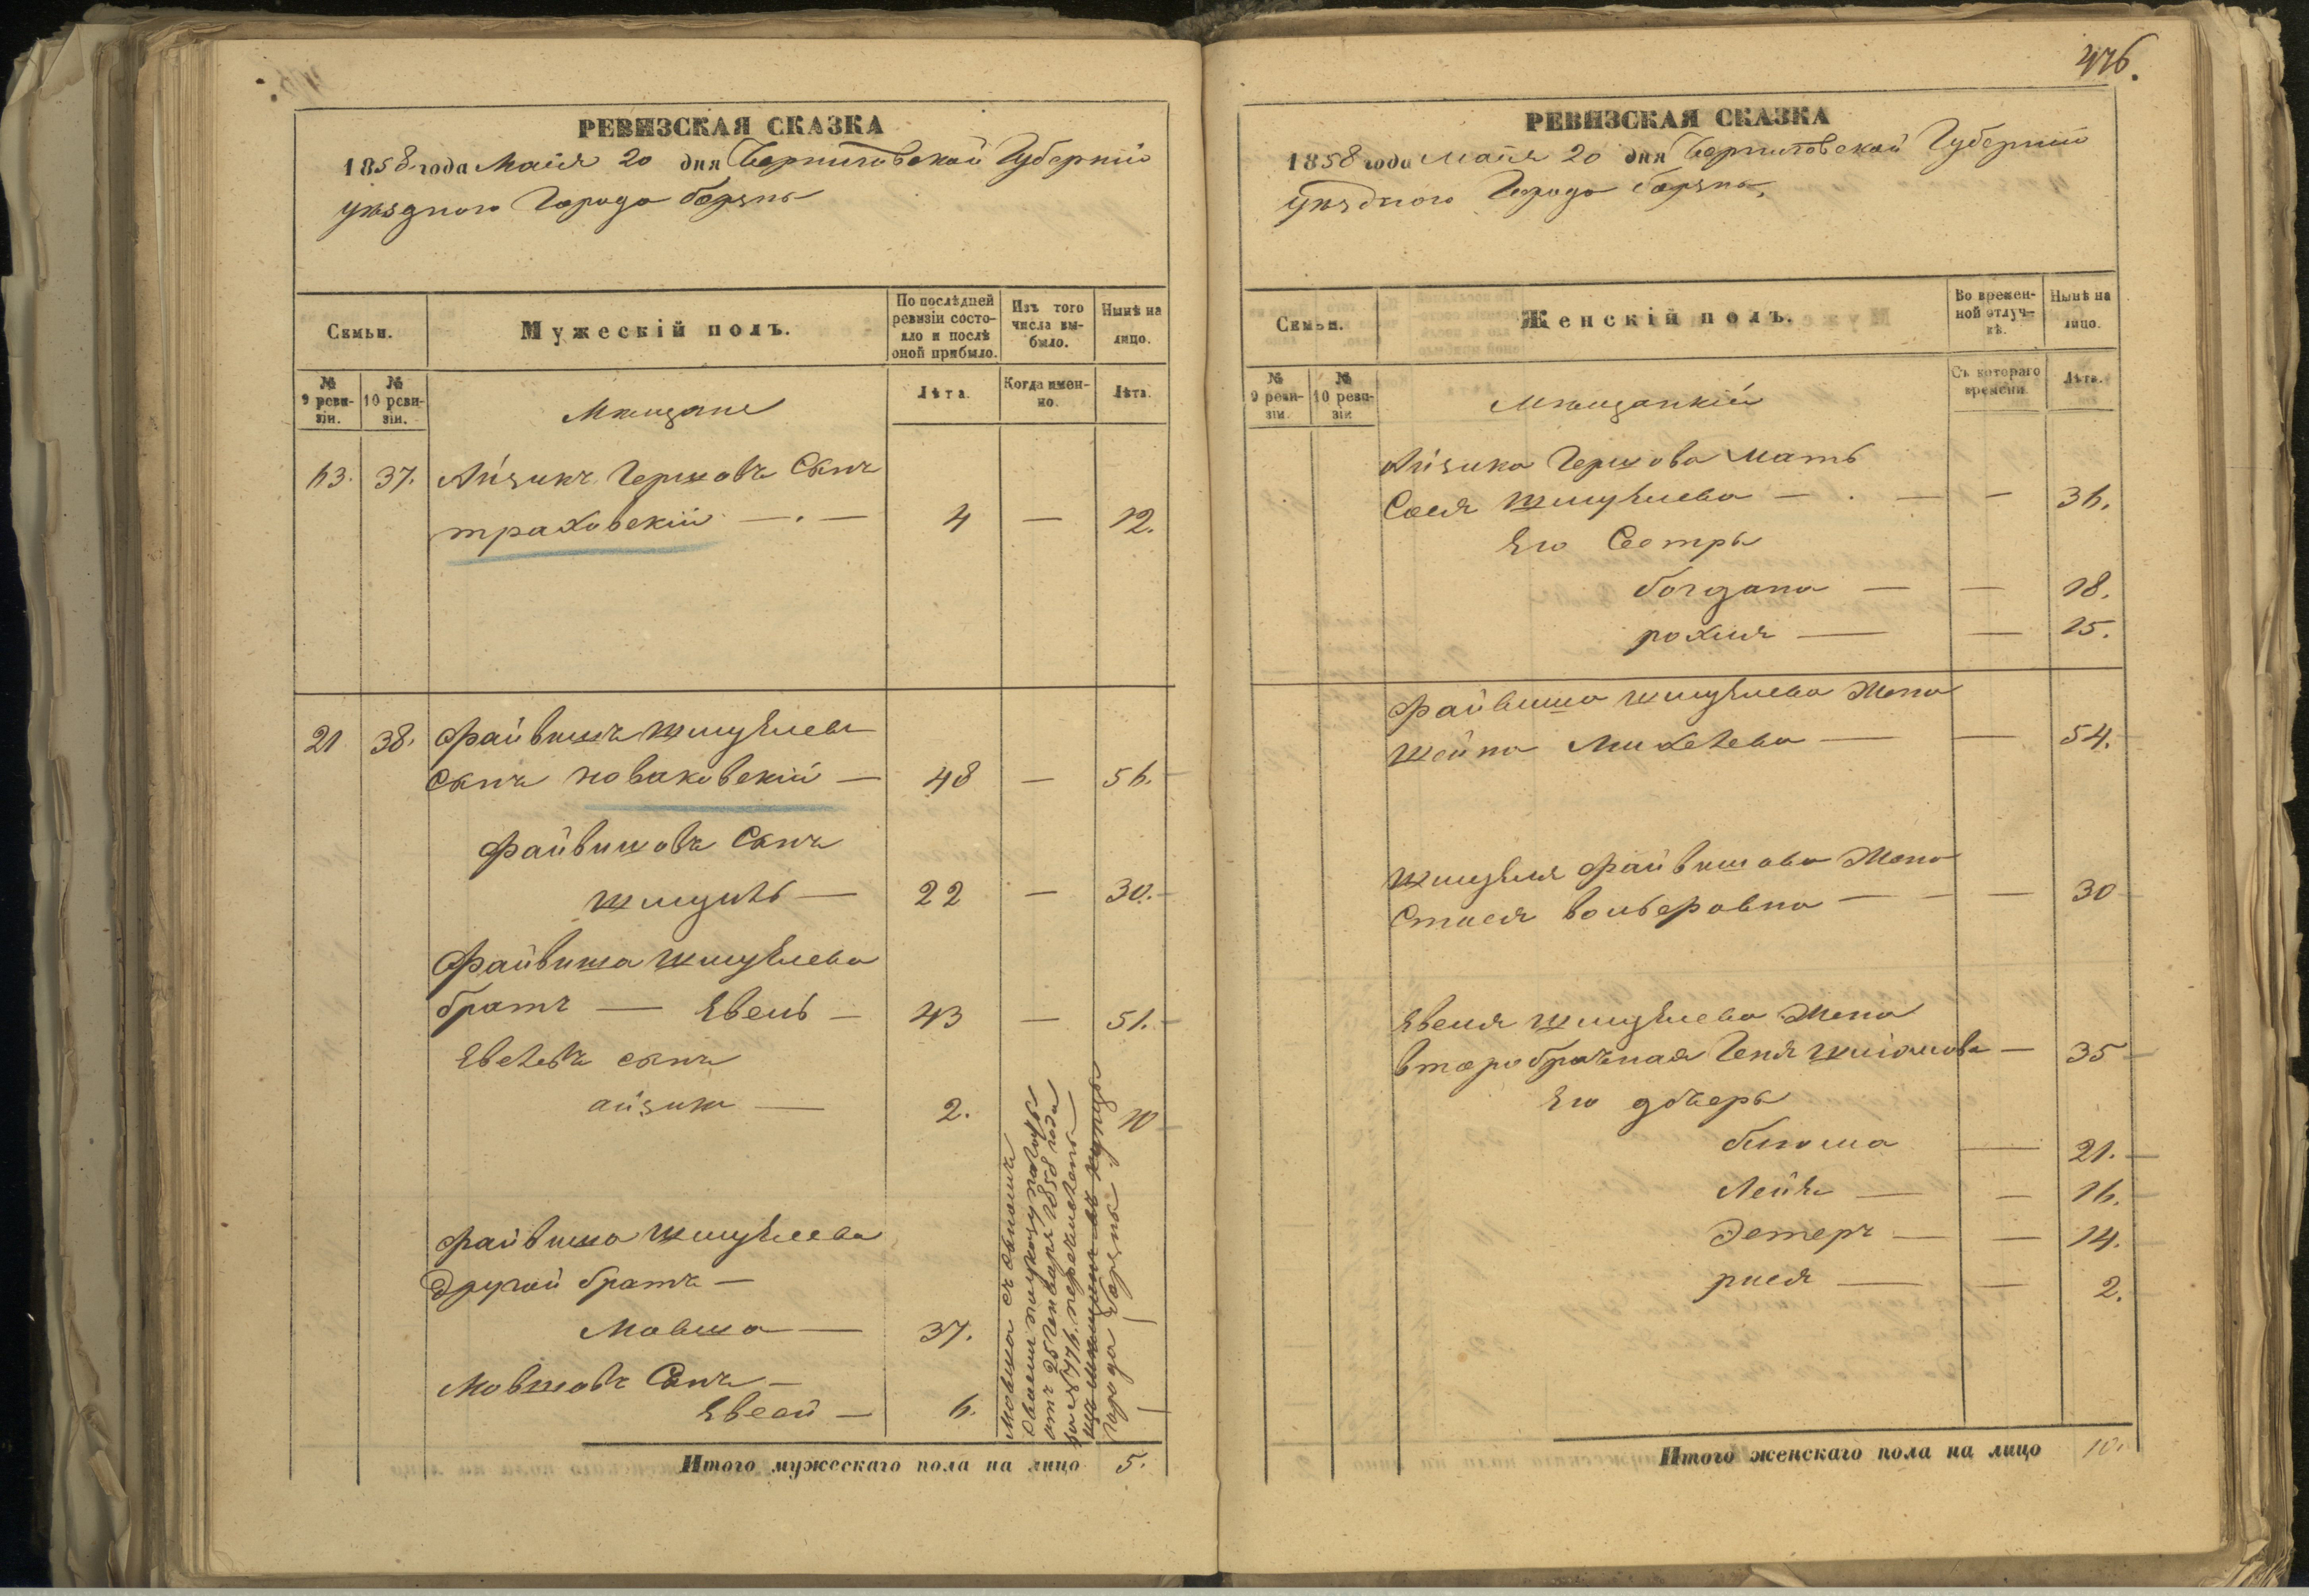 РЕВИЗСКАЯ СКАЗКА
1858 года Майя 20 дня Черниговской Губерніи
уѣзднаго Города борзны
Семьи.
Мужескій полъ.
По послѣдней ревизіи состояло и послѣ оной прибыло.
Изъ того числа выбыло.
Нынѣ на лицо.
№ 9 ревизіи.
№ 10 ревизіи.
Мѣщане
Лѣта.
Когда именно.
Лѣта.
63. 37. Айзикъ Гершовъ Сынъ
траховскій — 4 — 12.
21 38. Файвишъ Шмуйлевъ
Сынъ новаковскій — 48 — 56.
Файвишовъ Сынъ
шмуиль — 22 — 30.
Файвиша Шмуйлева
братъ — Евель — 43 — 51.
Евелевъ сынъ
айзик — 2. 10
Файвиша Шмуйлева
другой братъ —
Мовша — 37. —
Мовшовъ Сынъ —
Евсей — 6. —
Мовша съ сыномъ
Евсеем по указу палаты
отъ 25 Генваря 1858 года
за № 776. перечислены
Города Борзны
Итого мужескаго пола на лицо 5.
476.
РЕВИЗСКАЯ СКАЗКА
1858 года майя 20 дня Черниговской Губерніи
уѣзднаго Города борзны
Семьи.
Женскій полъ.
Во временной отлучкѣ.
Нынѣ на лицо.
№ 9 ревизіи.
№ 10 ревизіи
Мѣщанкій
Съ котораго времени
Лѣта.
Айзика Гершова мать
Сося Шмуйлева — — 36.
Его Сестры
богдана — — 18.
рохля — — 15.
Файвиша шмуйлева Жена
шейна Михелева — — 54.
Шмуйля Файвишова Жена
Стися вольеровна — — 30
Евеля шмуйлева Жена
второбрачная Геня — 35
Его дочеры
блюма — 21.
Лейя — — 16.
Эстеръ — — 14.
рися — — 2.
Итого женскаго пола на лицо 10.